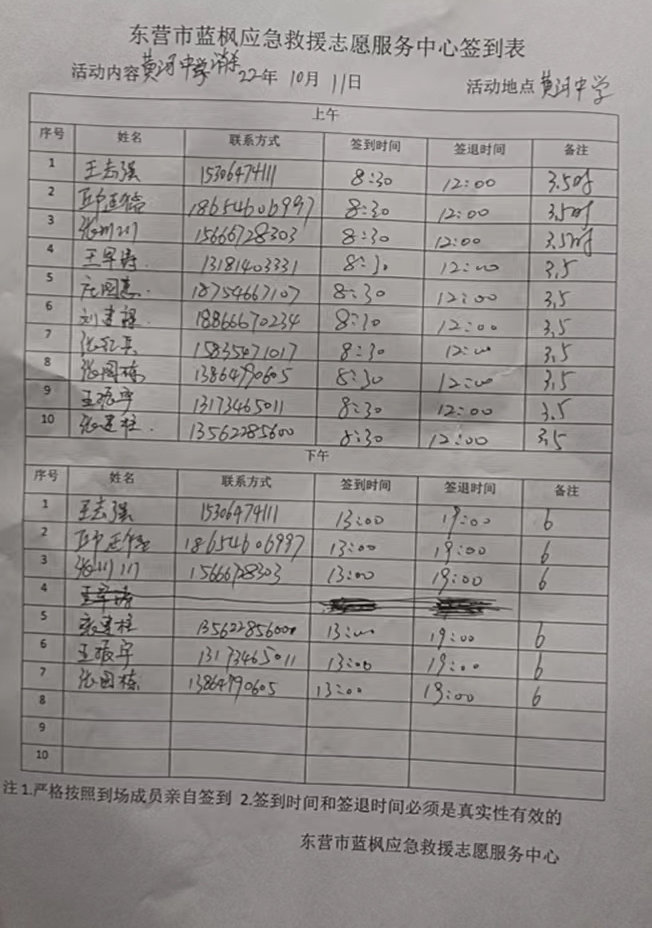 东营市蓝枫应急救援志愿服务中心签到表
活动内容 黄河中学消杀 22年 10月 11日 活动地点 黄河中学
上午
序号 姓名 联系方式 签到时间 签退时间 备注
1 王志强 15306474111 8:30 12:00 3.5时
2 18654606997 8:30 12:00 3.5时
3 张川川 15666728303 8:30 12:00 3.5时
4 王军涛 13181403331 8:30 12:00 3.5
5 18754667107 8:30 12:00 3.5
6 刘建 18866670234 8:30 12:00 3.5
7 15835471017 8:30 12:00 3.5
8 张国栋 13864790605 8:30 12:00 3.5
9 王振宇 13173465011 8:30 12:00 3.5
10 张建柱 13562285600 8:30 12:00 3.5
下午
序号 姓名 联系方式 签到时间 签退时间 备注
1 王志强 15306474111 13:00 19:00 6
2 18654606997 13:00 19:00 6
3 张川川 15666728303 13:00 19:00 6
4 王军涛
5 张建柱 13562285600 13:00 19:00 6
6 王振宇 13173465011 13:00 19:00 6
7 张国栋 13864790605 13:00 19:00 6
8
9
10
注 1.严格按照到场成员亲自签到 2.签到时间和签退时间必须是真实性有效的
东营市蓝枫应急救援志愿服务中心